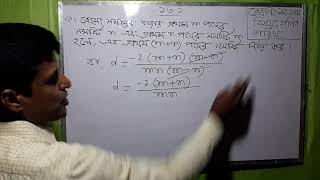 ১৩১
কোনো সমান্তর ধারার প্রথম m পদের
সমষ্টি n এবং প্রথম n পদের সমষ্টি m
হলে, এর প্রথম (m+n) পদের সমষ্টি নির্ণয় কর
বা, d = -2 (m+n) (m-n) / mn (m-n)
d = -2 (m+n) / mn